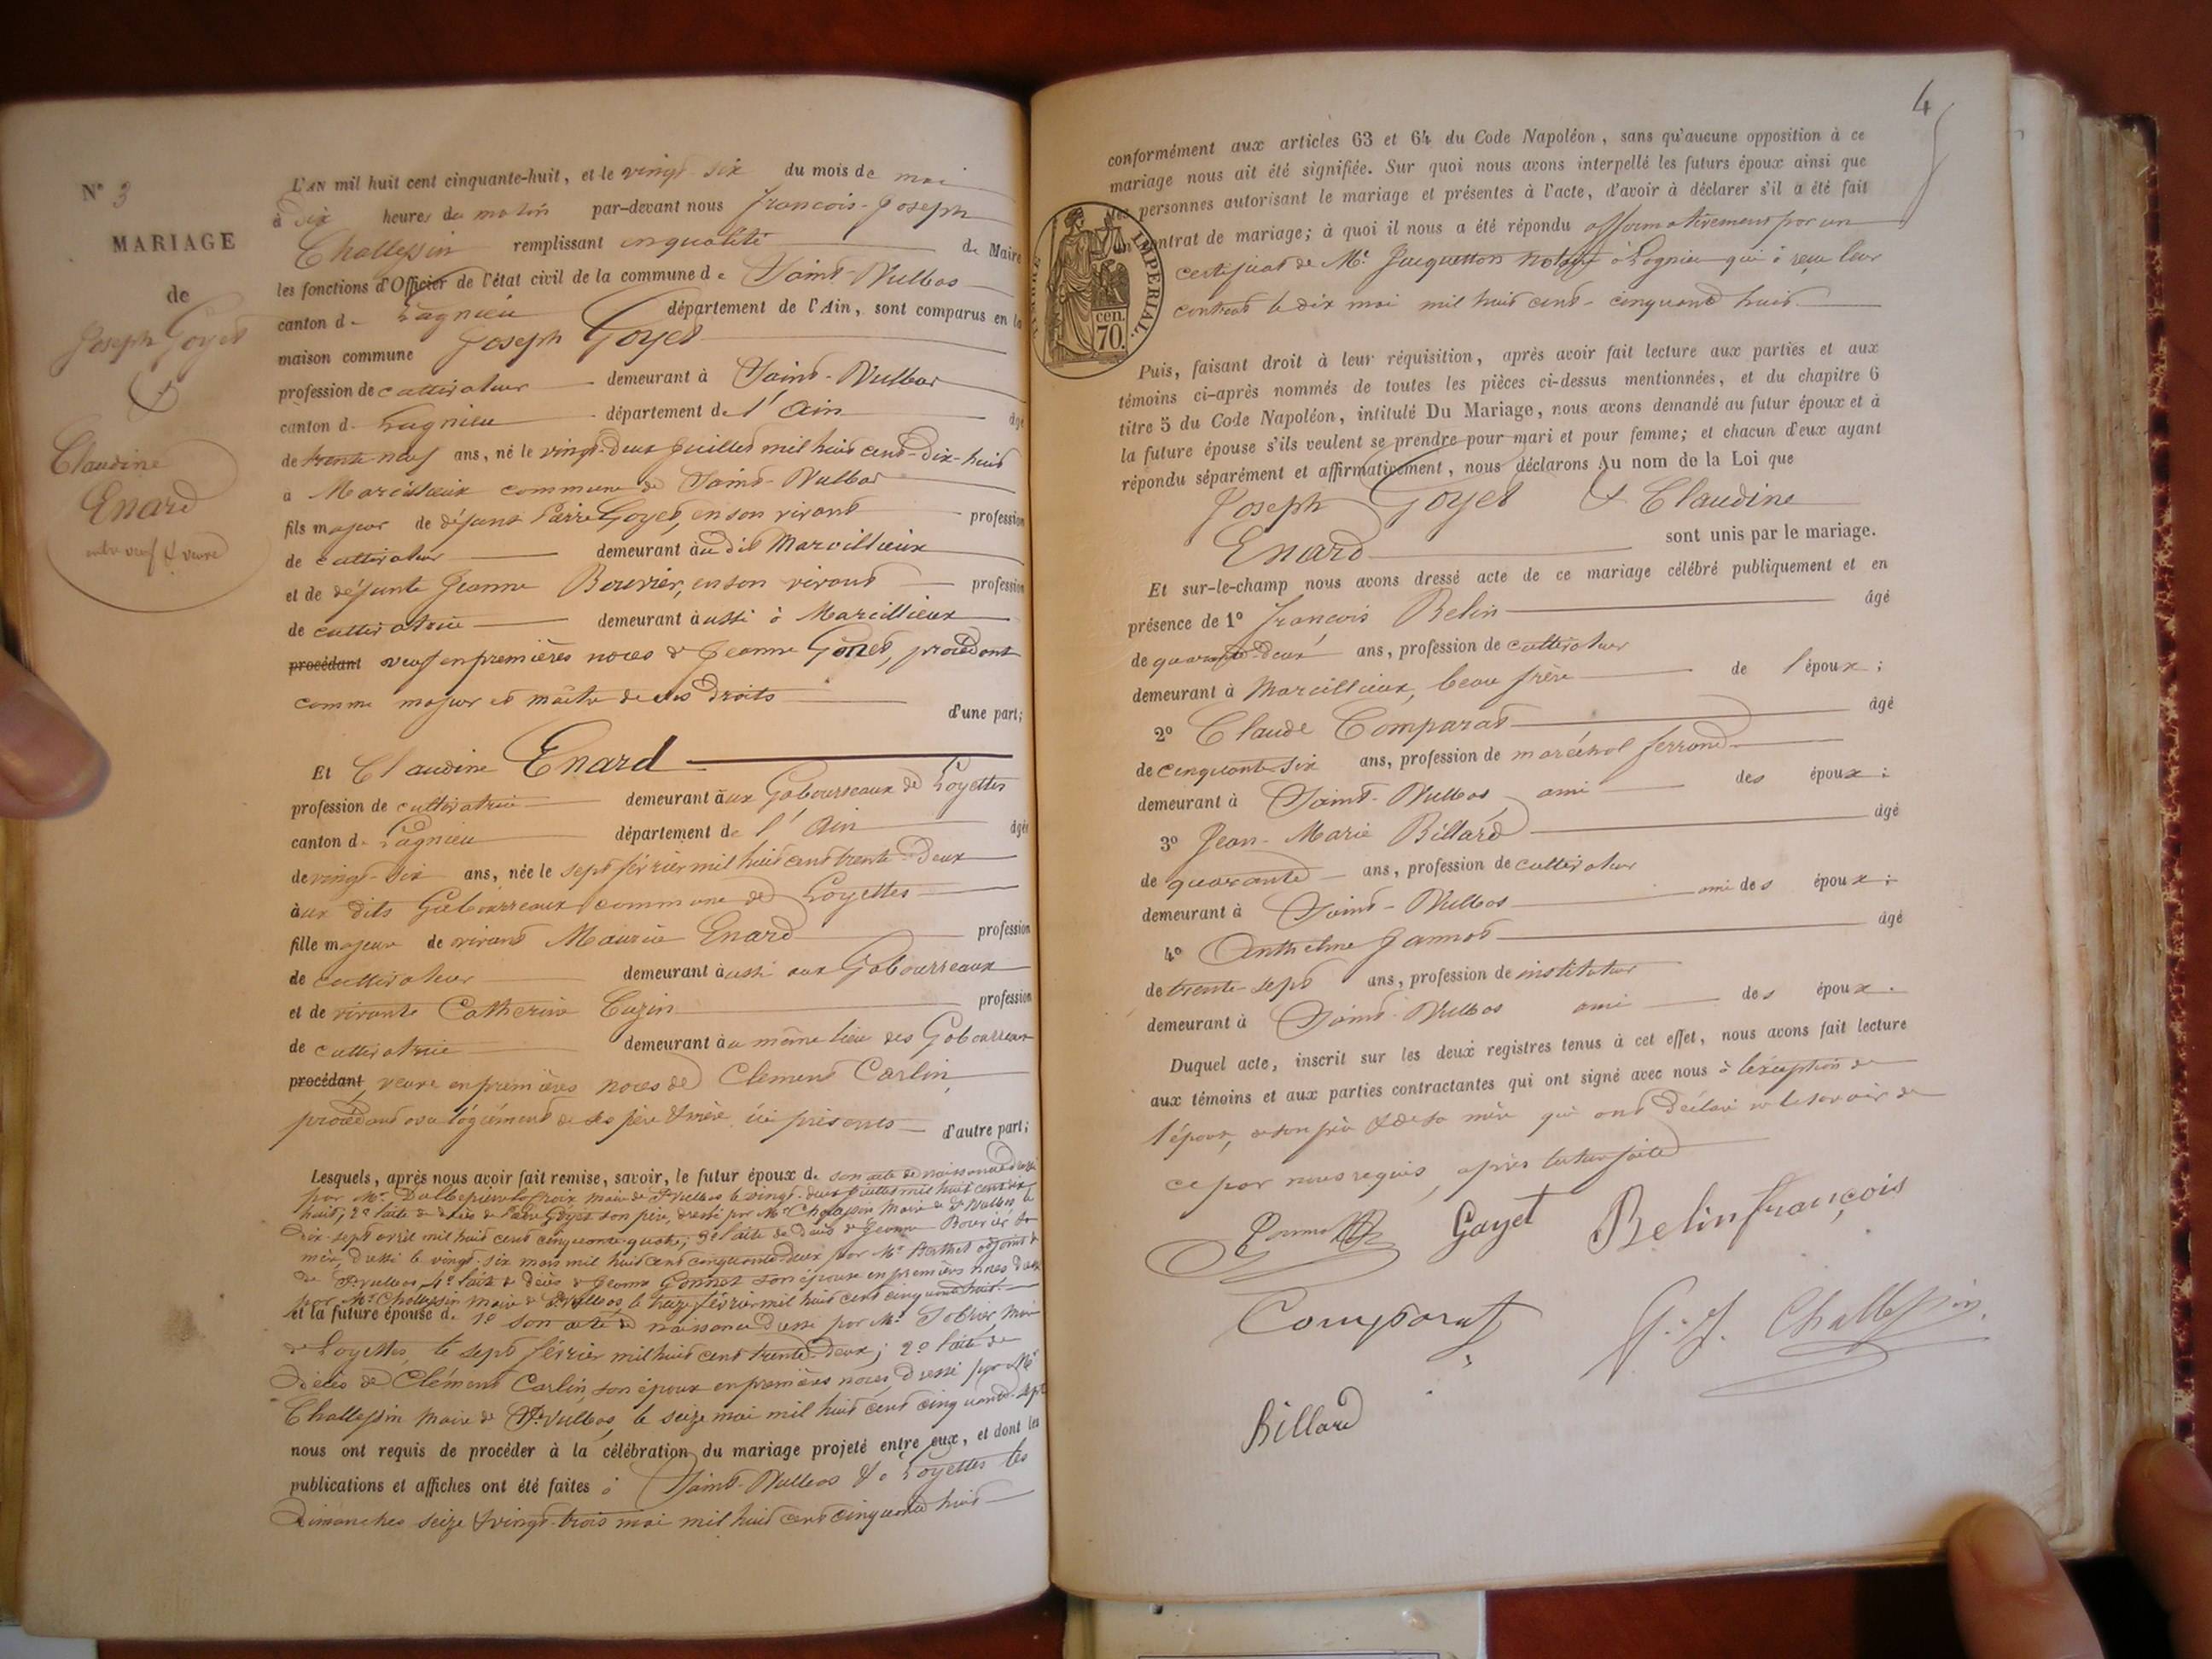 N° 3
MARIAGE
de
Joseph Goyet
&
Claudine
Enard
entre veuf & veuve
L'AN mil huit cent cinquante-huit, et le vingt-six du mois de mai
à dix heures du matin par-devant nous françois-Joseph
Challessin remplissant en qualité de Maire
les fonctions d'Officier de l'état civil de la commune de Saint-Vulbas
canton de Lagnieu département de l'Ain, sont comparus en la
maison commune Joseph Goyet
profession de cultivateur demeurant à Saint-Vulbas
canton de Lagnieu département de l'Ain âgé
de trente-neuf ans, né le vingt-deux Juillet mil huit cent-dix-huit
à Marcillieux commune de Saint-Vulbas
fils majeur de défunt Pierre Goyet, en son vivant profession
de cultivateur demeurant au dit Marcillieux
et de défunte Jeanne Bouvier, en son vivant profession
de cultivatrice demeurant aussi à Marcillieux
procédant veuf en premières noces de Jeanne Gonet, procédant
comme majeur et maître de ses droits
d'une part;
Et Claudine Enard
profession de cultivatrice demeurant aux Gabourreaux de Loyettes
canton de Lagnieu département de l'Ain âgée
de vingt-six ans, née le sept février mil huit cent trente-deux
aux dits Gabourreaux commune de Loyettes
fille majeure de vivant Maurice Enard profession
de cultivateur demeurant aussi aux Gabourreaux
et de vivante Catherine Cuzin profession
de cultivatrice demeurant au même lieu des Gabourreaux
procédant veuve en premières noces de Clément Carlin,
procédant de ses père & mère ici présents d'autre part;
Lesquels, après nous avoir fait remise, savoir, le futur époux de son acte de naissance dressé
par Mr maire de St Vulbas le vingt-deux juillet mil huit cent dix
huit; 2° l'acte de décès de Pierre Goyet son père, dressé par Mr Challessin Maire de St Vulbas, le
dix-sept avril mil huit cent cinquante quatre; 3° l'acte de décès de Jeanne Bouvier sa
mère, dressé le vingt-six mars mil huit cent cinquante deux par Mr adjoint
de St Vulbas, 4° l'acte de décès de Jeanne Gonnet son épouse en premières noces dressé
par Mr Challessin maire de St Vulbas, le treize février mil huit cent cinquante huit.
et la future épouse de 1° son acte de naissance dressé par Mr maire
de Loyettes, le sept février mil huit cent trente-deux; 2° l'acte de
décès de Clément Carlin, son époux en premières noces, dressé par Mr
Challessin Maire de St Vulbas, le seize mai mil huit cent cinquante-sept
nous ont requis de procéder à la célébration du mariage projeté entre eux, et dont les
publications et affiches ont été faites à Saint-Vulbas & à Loyettes les
Dimanches seize & vingt-trois mai mil huit cent cinquante huit
4
conformément aux articles 63 et 64 du Code Napoléon, sans qu'aucune opposition à ce
mariage nous ait été signifiée. Sur quoi nous avons interpellé les futurs époux ainsi que
les personnes autorisant le mariage et présentes à l'acte, d'avoir à déclarer s'il a été fait
un contrat de mariage; à quoi il nous a été répondu affirmativement par un
certificat de Me Jacquetton notaire à Lagnieu qui a reçu leur
contrat le dix mai mil huit cent-cinquante huit
IMPERIAL.
70 cen.
Puis, faisant droit à leur réquisition, après avoir fait lecture aux parties et aux
témoins ci-après nommés de toutes les pièces ci-dessus mentionnées, et du chapitre 6
titre 5 du Code Napoléon, intitulé Du Mariage, nous avons demandé au futur époux et à
la future épouse s'ils veulent se prendre pour mari et pour femme; et chacun d'eux ayant
répondu séparément et affirmativement, nous déclarons Au nom de la Loi que
Joseph Goyet & Claudine
Enard sont unis par le mariage.
Et sur-le-champ nous avons dressé acte de ce mariage célébré publiquement et en
présence de 1° françois Belin âgé
de quarante-deux ans, profession de cultivateur
demeurant à Marcillieux, beau frère de l'époux;
2° Claude Comparat âgé
de cinquante-six ans, profession de maréchal ferrand
demeurant à Saint-Vulbas, ami des époux;
3° Jean-Marie Billard âgé
de quarante ans, profession de cultivateur
demeurant à Saint-Vulbas ami des époux;
4° Anthelme Jannot âgé
de trente-sept ans, profession de instituteur
demeurant à Saint-Vulbas ami des époux.
Duquel acte, inscrit sur les deux registres tenus à cet effet, nous avons fait lecture
aux témoins et aux parties contractantes qui ont signé avec nous à l'exception de
l'épouse, de son père & de sa mère qui ont déclaré ne le savoir de
ce par nous requis, après lecture faite
Goyet Belin françois
Comparat F. J. Challessin
Billard